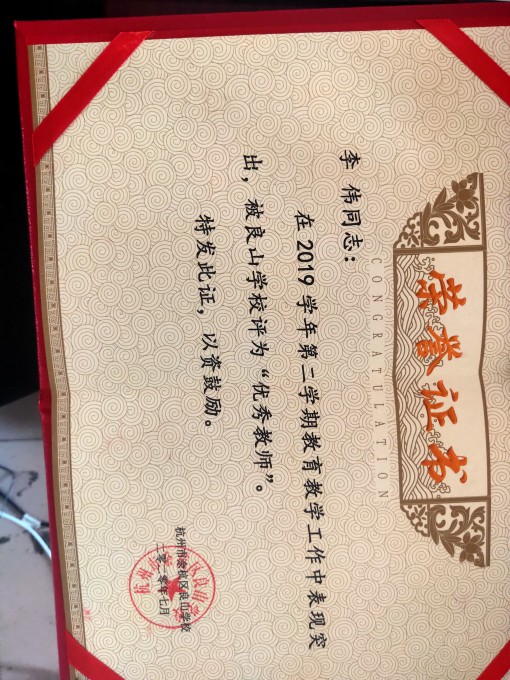 荣誉证书
CONGRATULATION
李 伟同志：
在 2019 学年第二学期教育教学工作中表现突
出，被良山学校评为“优秀教师”。
特发此证，以资鼓励。
杭州市余杭区良山学校
二零二零年七月